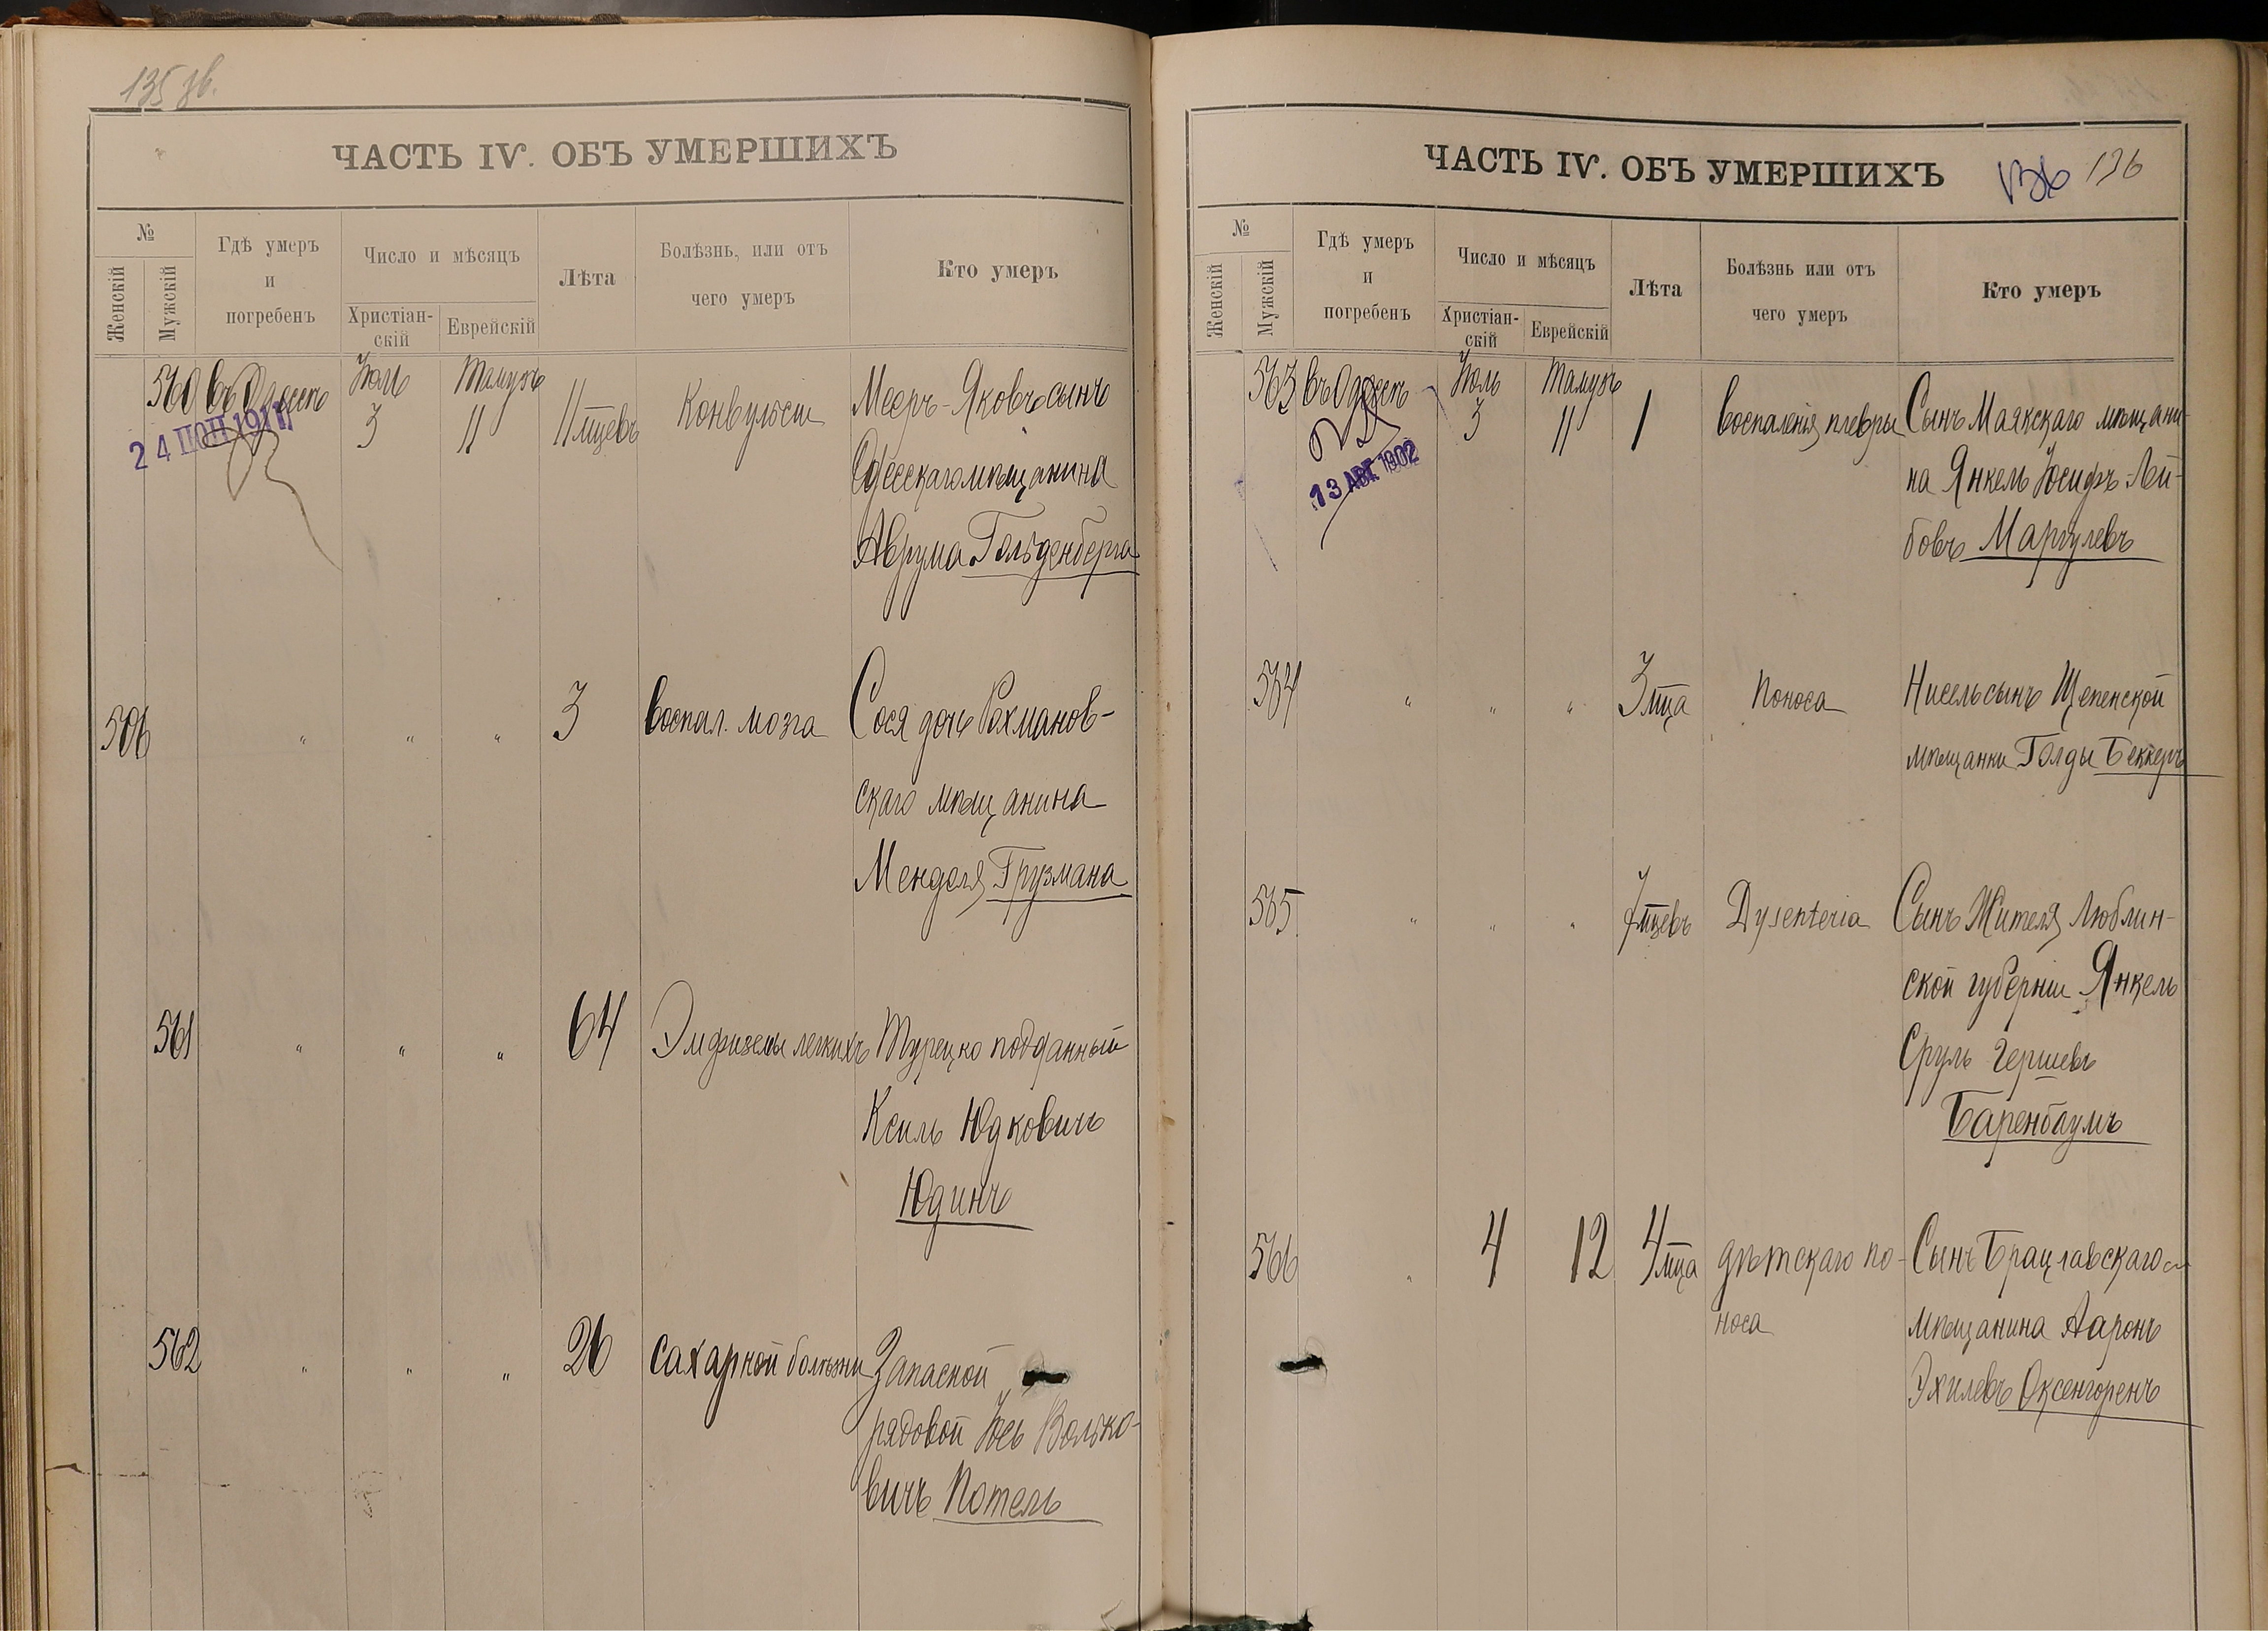 135 зв.
ЧАСТЬ IV. ОБЪ УМЕРШИХЪ
№
Женскій
Мужскій
Гдѣ умеръ
и
погребенъ
Число и мѣсяцъ
Христіан-
скій
Еврейскій
Лѣта
Болѣзнь, или отъ
чего умеръ
Кто умеръ
560 въ Одессѣ Іюль 3 Тамузъ 11 11 мцевъ Конвульсіи Мееръ-Яковъ сынъ
24 1911
Одесскаго мѣщанина
Аврума Гольденберга
506 " " " 3 воспал. мозга Сося дочь Рохманов-
скаго мѣщанина
Менделя Грузмана
561 " " " 64 Эмфиземы легкихъ Турецко подданный
Ксиль Юдковичъ
Юдинъ
562 " " " 26 сахарной болѣзни Запасной
рядовой Іось Волько-
вичъ Котель
ЧАСТЬ IV. ОБЪ УМЕРШИХЪ
136 136
№
Женскій
Мужскій
Гдѣ умеръ
и
погребенъ
Число и мѣсяцъ
Христіан-
скій
Еврейскій
Лѣта
Болѣзнь или отъ
чего умеръ
Кто умеръ
563 въ Одессѣ Іюль 3 Тамузъ 11 1 воспаленія плевры Сынъ Маякскаго мѣщани-
13 АВГ. 1902
на Янкель Іосифъ-Лей-
бовъ Маргулевъ
564 " " " 3 мца Поноса Нисель сынъ
мѣщанки Голды Беккеръ
565 " " " 7 мцевъ Dysenteria Сынъ Жителя Люблин-
ской губерніи Янкель
Сруль Гершевъ
Баренбаумъ
566 " 4 12 4 мца дѣтскаго по- Сынъ Брацлавскаго
носа мѣщанина Ааронъ
Эхилевъ Оксенгоренъ